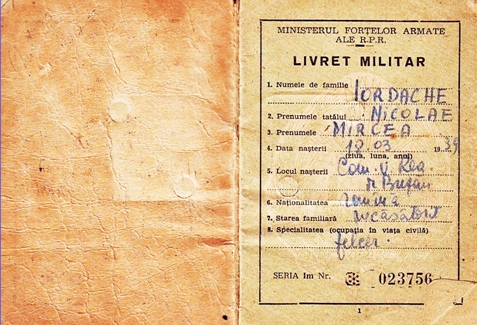 MINISTERUL FORȚELOR ARMATE
ALE R.P.R.
LIVRET MILITAR
1. Numele de familie IORDACHE
2. Prenumele tatălui NICOLAE
3. Prenumele MIRCEA
4. Data nașterii 18.03 1939
(ziua, luna, anul)
5. Locul nașterii Com. V. Rea
6. Naționalitatea română
7. Starea familiară necăsătorit
8. Specialitatea (ocupația în viața civilă)
felcer.
SERIA Im Nr. 023756
1